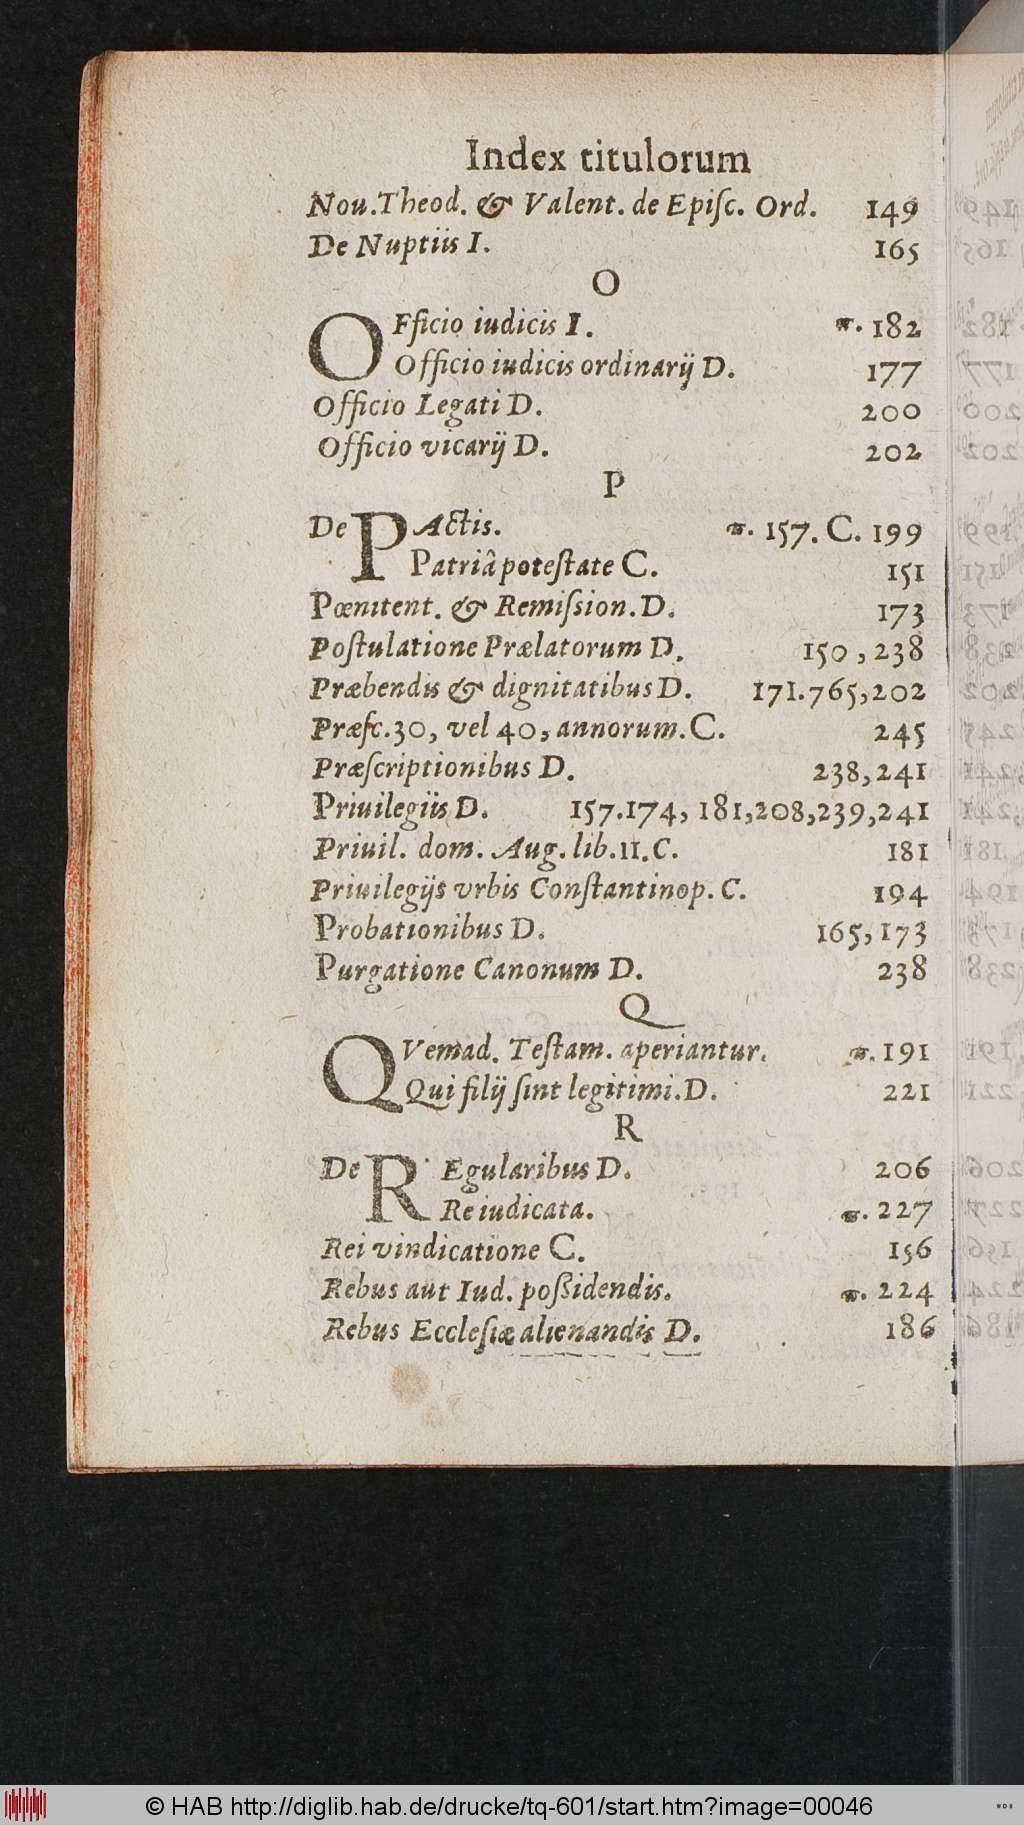 Index titulorum
Nou. Theod. & Valent. de Episc. Ord. 149
De Nuptiis I. 165
O
OFficio iudicis I. π. 182
Officio iudicis ordinarij D. 177
Officio Legati D. 200
Officio vicarij D. 202
P
De PActis. π. 157. C. 199
Patriâ potestate C. 151
Pœnitent. & Remission. D. 173
Postulatione Prælatorum D. 150, 238
Præbendis & dignitatibus D. 171. 765, 202
Præsc. 30, vel 40, annorum. C. 245
Præscriptionibus D. 238, 241
Priuilegiis D. 157. 174, 181, 208, 239, 241
Priuil. dom. Aug. lib. 11. C. 181
Priuilegijs vrbis Constantinop. C. 194
Probationibus D. 165, 173
Purgatione Canonum D. 238
Q
QVemad. Testam. aperiantur. π. 191
Qui filij sint legitimi. D. 221
R
De REgularibus D. 206
Re iudicata. π. 227
Rei vindicatione C. 156
Rebus aut Iud. poßidendis. π. 224
Rebus Ecclesiæ alienandis D. 186
© HAB http://diglib.hab.de/drucke/tq-601/start.htm?image=00046